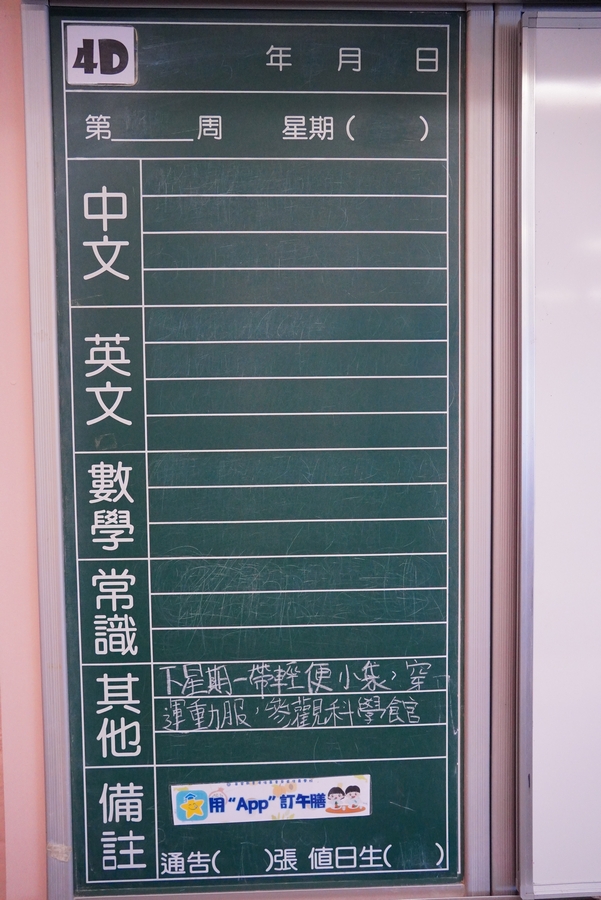 4D
年 月 日
第______周 星期( )
中文
英文
數學
常識
其他
下星期一帶輕便小袋，穿
運動服，參觀科學館
備註
用“App”訂午膳
通告( )張 值日生( )